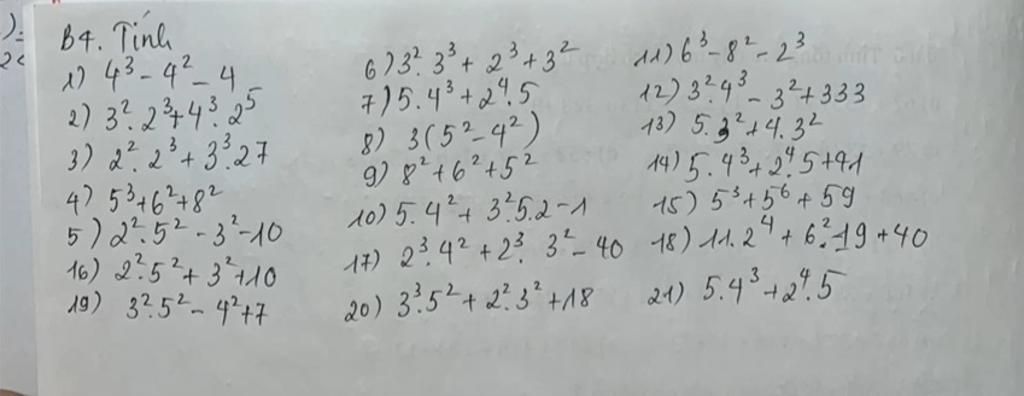 B4. Tính
1) 4³ - 4² - 4
2) 3².2³ + 4³.2⁵
3) 2².2³ + 3³.27
4) 5³ + 6² + 8²
5) 2².5² - 3² - 10
16) 2².5² + 3² + 10
19) 3².5² - 4² + 7
6) 3².3³ + 2³ + 3²
7) 5.4³ + 2⁴.5
8) 3(5² - 4²)
9) 8² + 6² + 5²
10) 5.4² + 3².5.2 - 1
17) 2³.4² + 2³.3² - 40
20) 3³.5² + 2².3² + 18
11) 6³ - 8² - 2³
12) 3².4³ - 3² + 333
13) 5.3² + 4.3²
14) 5.4³ + 2⁴.5 + 41
15) 5³ + 5⁶ + 59
18) 11.2⁴ + 6².19 + 40
21) 5.4³ + 2⁴.5